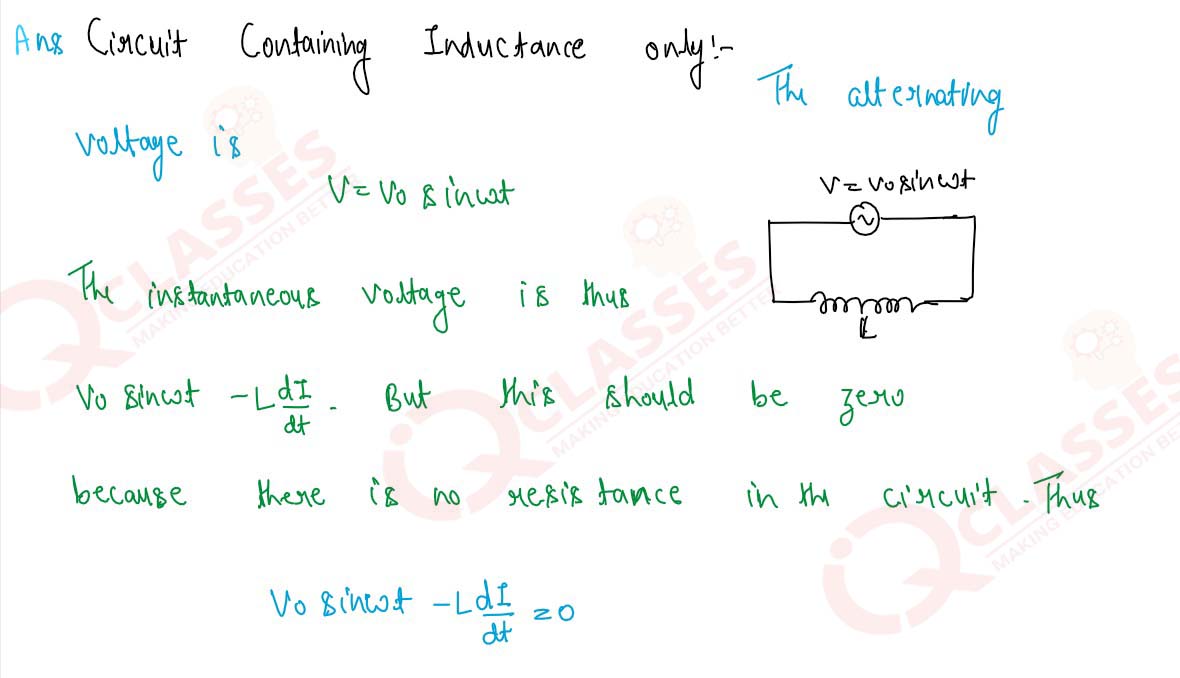 Ans Circuit Containing Inductance only:-
The alternating
voltage is
V = Vo sinωt
V = Vo sinωt
L
The instantaneous voltage is thus
Vo sinωt - L dI/dt . But this should be zero
because there is no resistance in th circuit. Thus
Vo sinωt - L dI/dt = 0
IQ CLASSES
MAKING EDUCATION BETTER
IQ CLASSES
MAKING EDUCATION BETTER
IQ CLASSES
MAKING EDUCATION BETTER